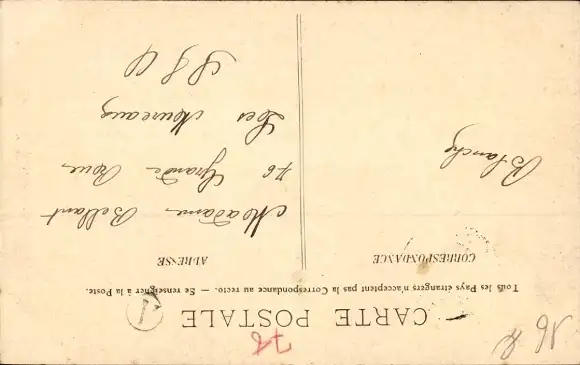 CARTE POSTALE
Tous les Pays étrangers n'acceptent pas la Correspondance au recto. — Se renseigner à la Poste.
CORRESPONDANCE
Blanche
ADRESSE
Madame Bellant
76 Grande Rue
Les Mureaux
S & O
78